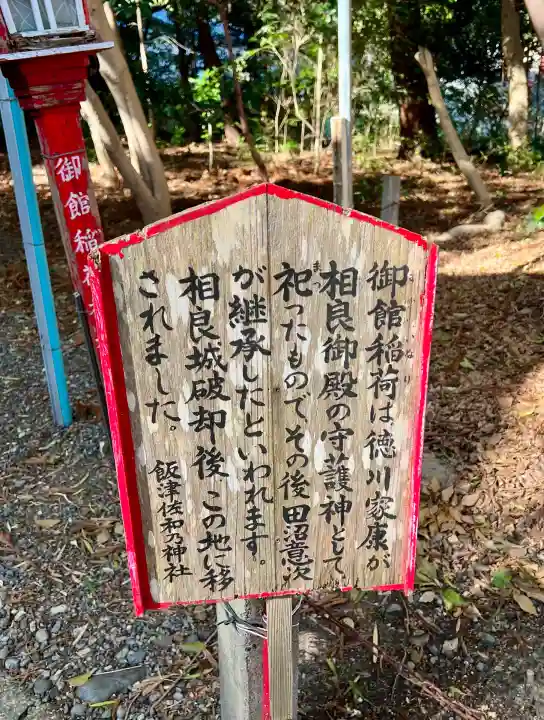 御館稲荷は徳川家康が
相良御殿の守護神として
祀ったものでその後田沼意次
が継承したといわれます。
相良城破却後この地に移
されました。
飯津佐和乃神社
まつ
御館稲